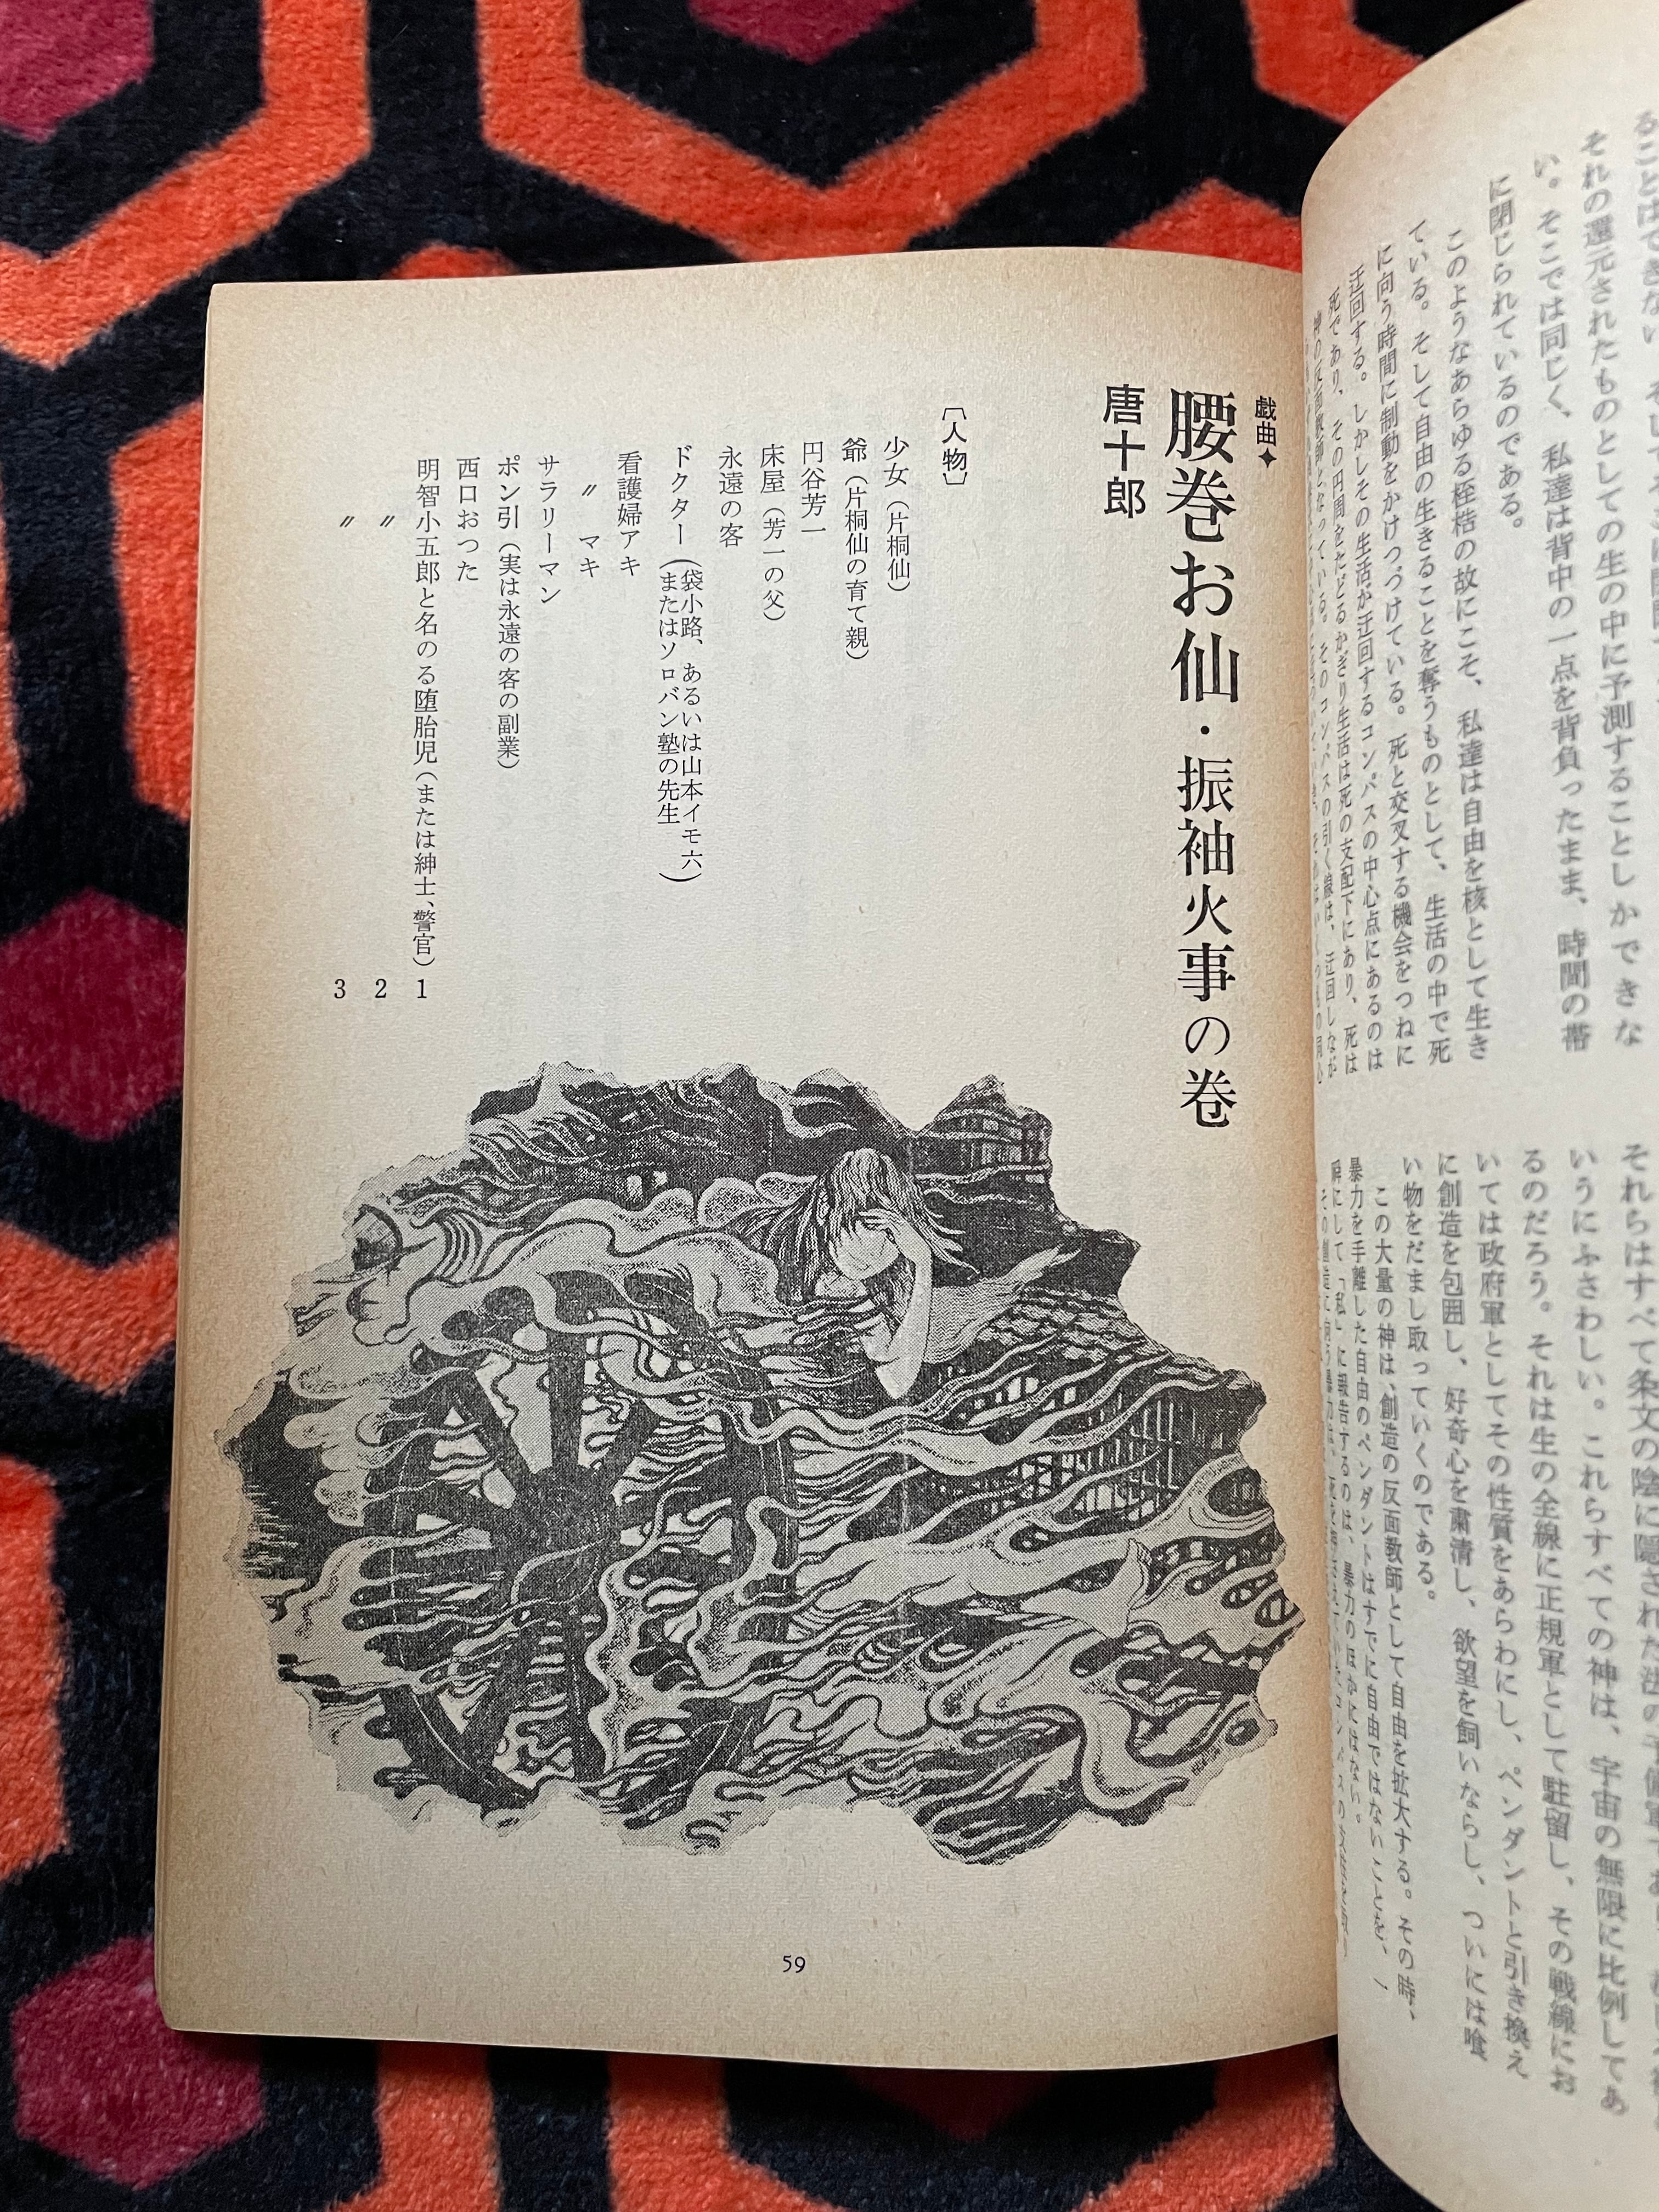 それの還元されたものとしての生の中に予測することしかできな
い。そこでは同じく、私達は背中の一点を背負ったまま、時間の帯
に閉じられているのである。
このようなあらゆる桎梏の故にこそ、私達は自由を核として生き
ている。そして自由の生きることを奪うものとして、生活の中で死
に向う時間に制動をかけつづけている。死と交叉する機会をつねに
迂回する。しかしその生活が迂回するコンパスの中心点にあるのは
死であり、その円周をたどるかぎり生活は死の支配下にあり、死は
それらはすべて条文の陰に隠された法の予備軍であり
いうにふさわしい。これらすべての神は、宇宙の無限に比例してあ
るのだろう。それは生の全線に正規軍として駐留し、その戦線にお
いては政府軍としてその性質をあらわにし、ペンダントと引き換え
に創造を包囲し、好奇心を粛清し、欲望を飼いならし、ついには喰
い物をだまし取っていくのである。
この大量の神は、創造の反面教師として自由を拡大する。その時、
暴力を手離した自由のペンダントはすでに自由ではないことを、
瞬にして「私」に報告するのは、暴力のほかにはない。
戯曲✦
腰巻お仙・振袖火事の巻
唐十郎
〔人物〕
少女（片桐仙）
爺（片桐仙の育て親）
円谷芳一
床屋（芳一の父）
永遠の客
ドクター（袋小路、あるいは山本イモ六）
（またはソロバン塾の先生
看護婦アキ
〃　マキ
サラリーマン
ポン引（実は永遠の客の副業）
西口おった
明智小五郎と名のる堕胎児（または紳士、警官）1
〃 2
〃 3
59